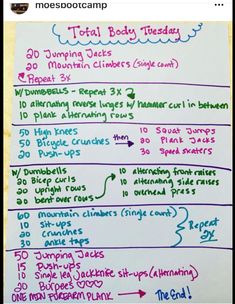 moesbootcamp
Total Body Tuesday
20 Jumping Jacks
20 Mountain Climbers (single count)
Repeat 3x
W/ DUMBBELLS - Repeat 3x
10 alternating reverse lunges w/ hammer curl in between
10 plank alternating rows
50 High Knees
50 Bicycle Crunches then
20 Push-ups
10 Squat Jumps
20 Plank Jacks
30 Speed skaters
W/ Dumbbells
20 Bicep curls
20 upright rows
20 bent over rows
10 alternating front raises
10 alternating side raises
10 overhead press
60 mountain climbers (single count)
10 Sit-ups
20 crunches
30 ankle taps
Repeat 2x
50 Jumping Jacks
15 Push-ups
10 Single leg Jackknife sit-ups (alternating)
20 Burpees
ONE MIN FOREARM PLANK
The End!